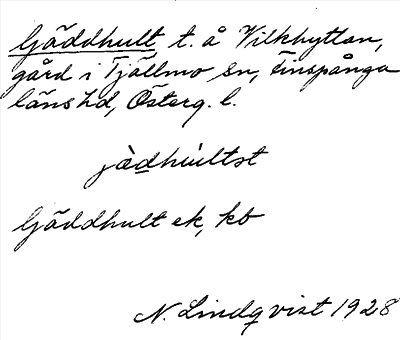 Gäddhult t. å Vilkhyttan,
gård i Tjällmo sn, Finspånga
läns hd, Österg. l.
jàdhùltst
Gäddhult ek, kb
N. Lindqvist 1928